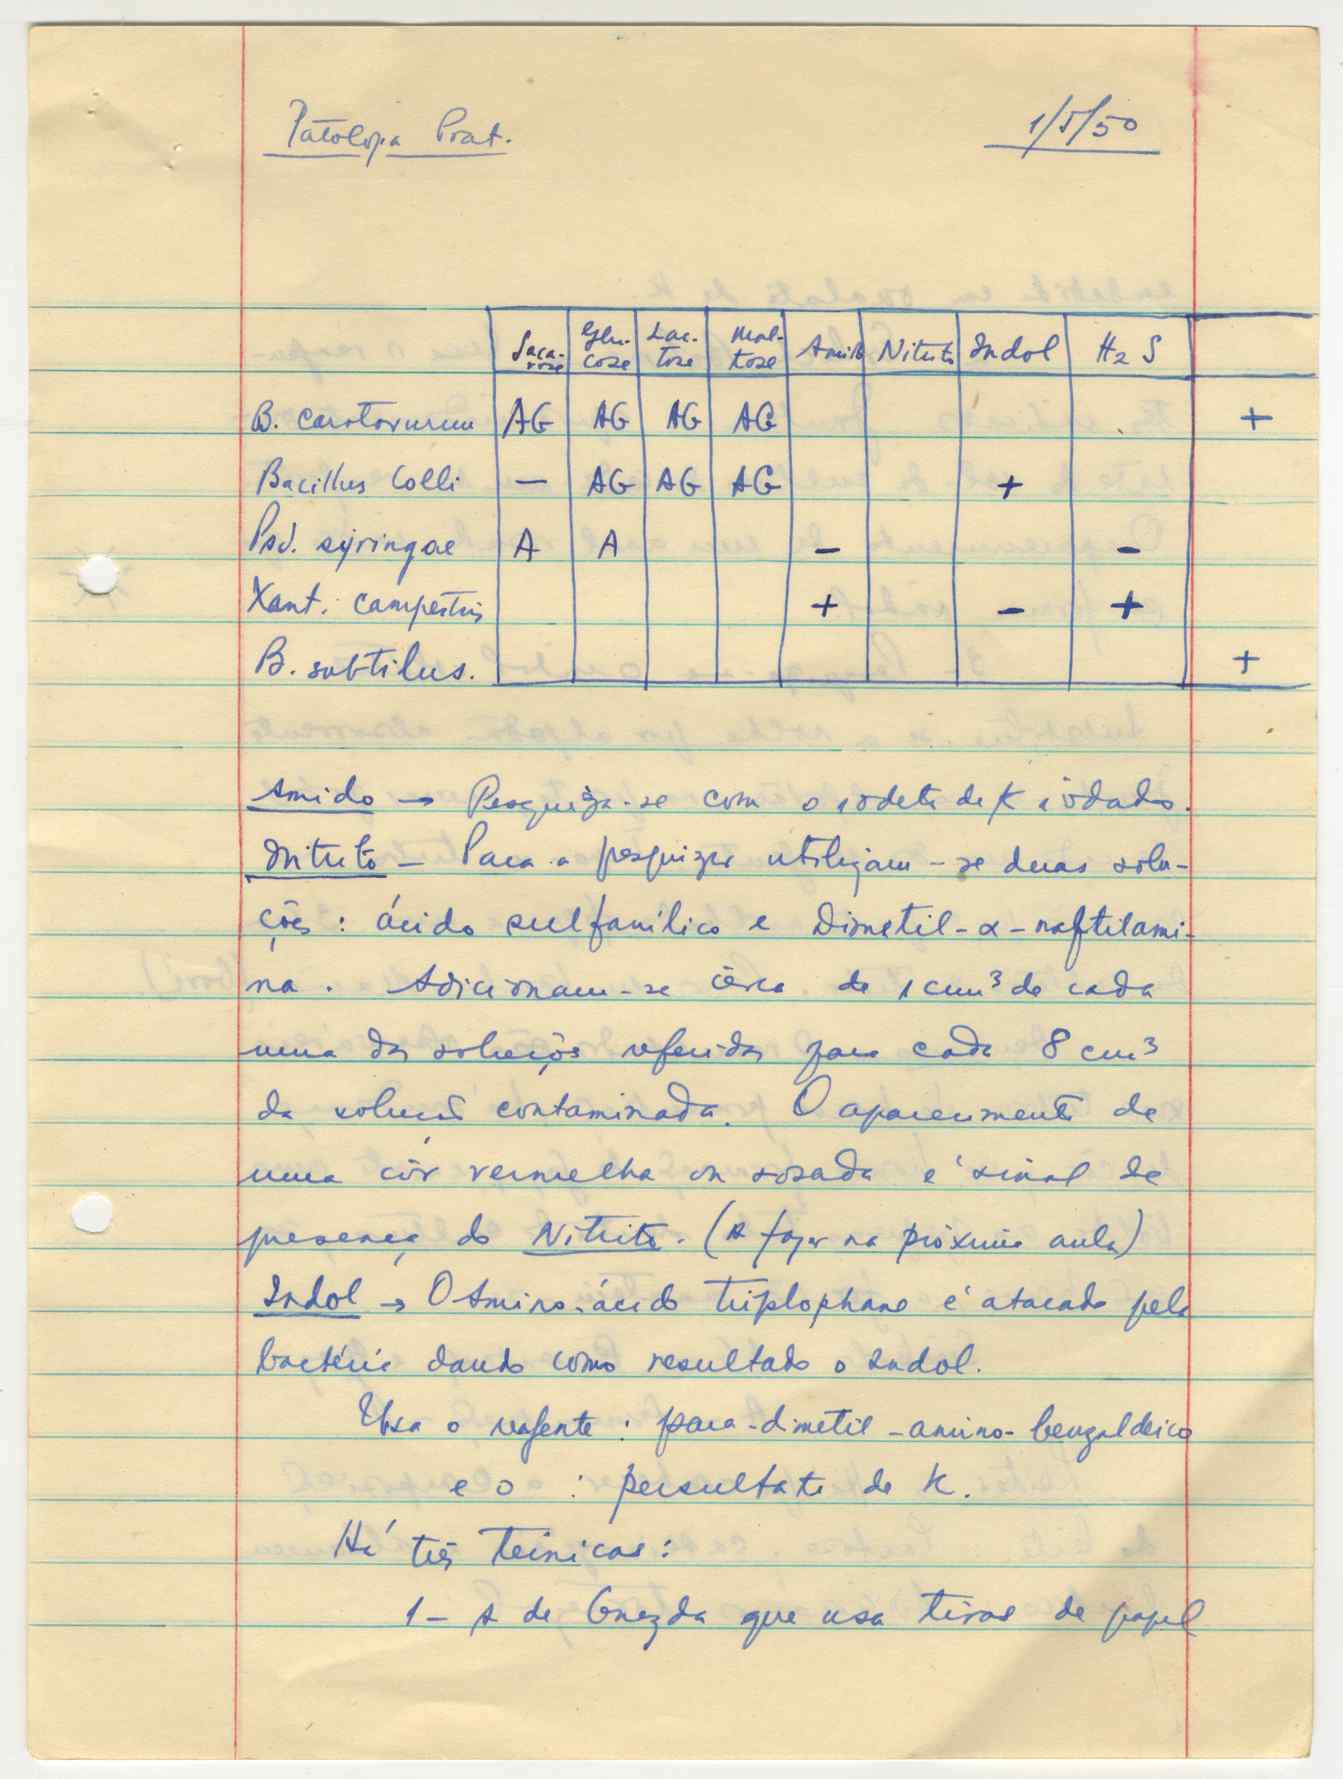 Patologia Prat. 1/5/50
Saca-rose Glu-cose Lac-tose Mal-tose Amido Nitrito Indol H2S
B. carotovorum AG AG AG AG +
Bacillus Colli — AG AG AG +
Psd. syringae A A - -
Xant. campestris + - +
B. subtilus. +
Amido → Pesquiza-se com o iodeto de K iodado.
Nitrito - Para a pesquizar utilizam-se duas solu-
ções: ácido sulfanílico e Dimetil-α-naftilami-
na. Adicionam-se cêrca de 1 cm³ de cada
uma das soluções referidas para cada 8 cm³
da solução contaminada. O aparecimento de
uma côr vermelha ou rosada é sinal de
presença do Nitrito. (A fazer na próxima aula)
Indol → O Amino-ácido triplophano é atacado pela
bactéria dando como resultado o Indol.
Usa o reagente: para-dimetil-amino-benzaldeico
e o : persultato de K.
Há três técnicas:
1- A de Gnezda que usa tiras de papel